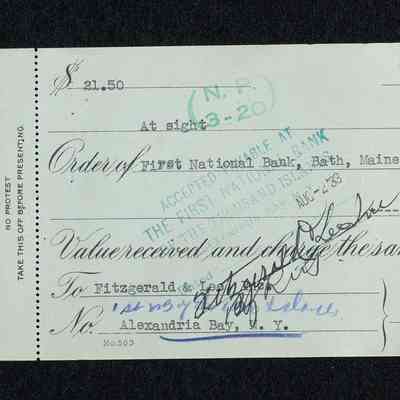 NO PROTEST
TAKE THIS OFF BEFORE PRESENTING
$ 21.50
(N. P.
3-20)
At sight
Order of First National Bank, Bath, Maine
ACCEPTED PAYABLE AT
THE FIRST NATIONAL BANK
OF THE THOUSAND ISLANDS
AUG -2 '33
Value received and charge the sa
To Fitzgerald & Lee
No. Alexandria Bay, N. Y.
No.503